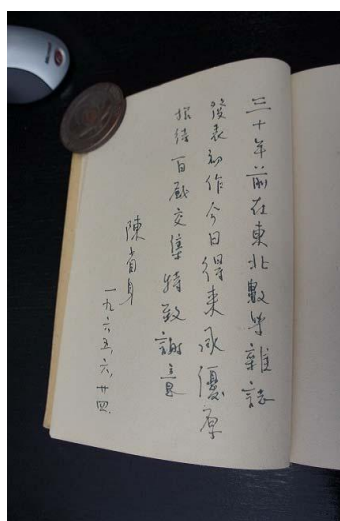 三十年前在東北數學雜誌
發表初作今日得來承優厚
招待百感交集特致謝意
陳省身
一九六五、六、廿四.